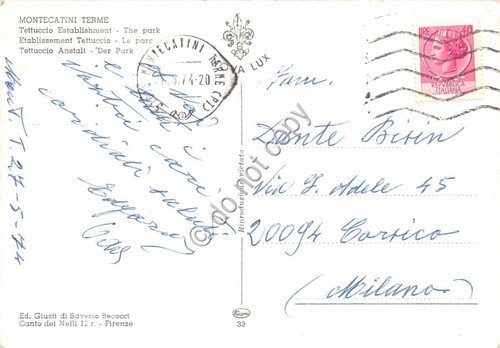 MONTECATINI TERME
Tettuccio Establishment - The park
Etablissement Tettuccio - Le parc
Tettuccio Anstalt - Der Park
MONTECATINI TERME (PT)
74-20
NOVA LUX
40
ITALIANA
Mont. T. 27-5-74
a
e
i
cari
cordiali saluti
do not copy
Riproduzione vietata
Fam.
Dante Bisin
Via S. Adele 45
20094 Corsico
(Milano)
Ed. Giusti di Saverio Becocci
Canto dei Nelli 12 r. - Firenze
32